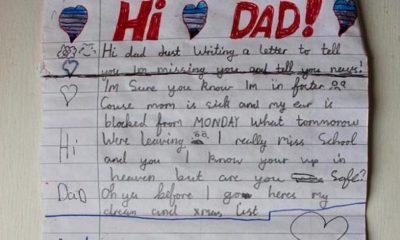 Hi DAD!
Hi dad Just Writing a letter to tell
you Im missing you and tell you news!
I'm Sure you know Im in foster
Couse mom is sick and my ear is
blocked from MONDAY what tommorow
Hi Were leaving I really miss School
and you I know your up in
heaven but are you Safe?
Dad Oh ye before I go heres my
dream and xmas list